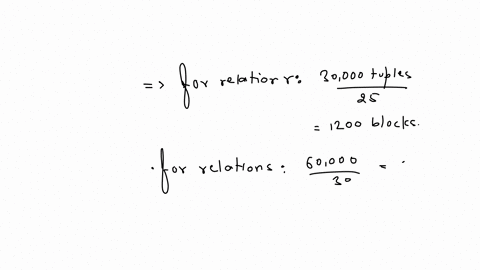 => for relation r: 30,000 tuples / 25
= 1200 blocks.
. for relations: 60,000 / 30 = .